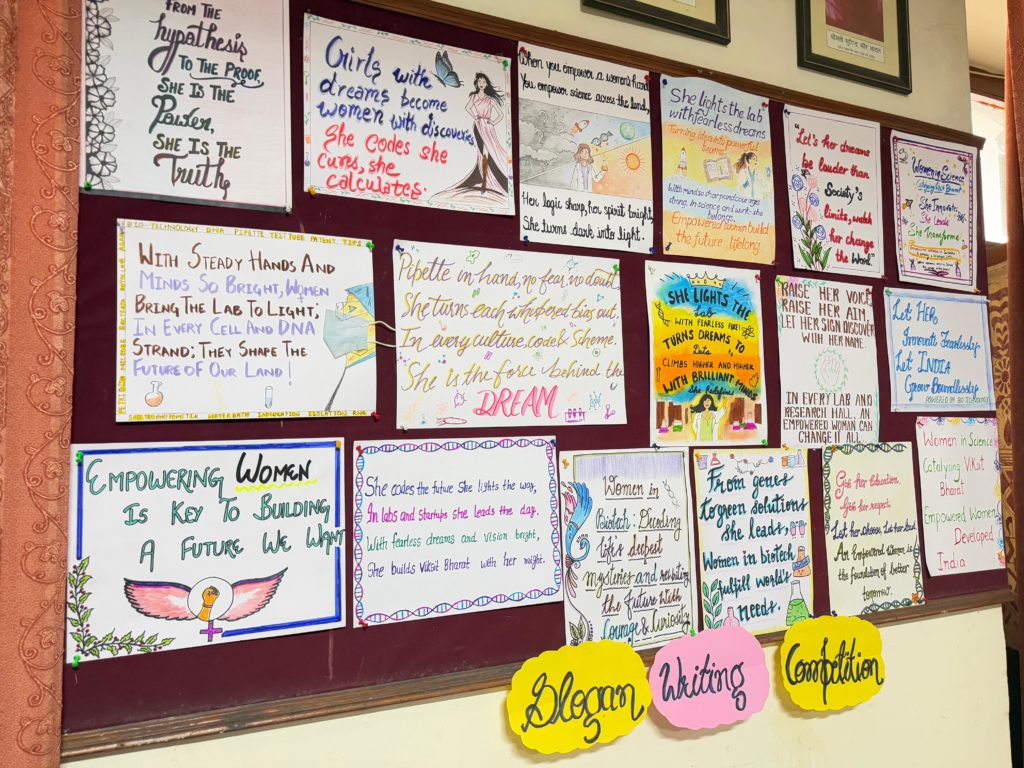 FROM THE
hypothesis
TO THE PROOF,
SHE IS THE
Power,
SHE IS THE
Truth
Girls with
dreams become
women with discoveries
She codes she
cures, she
calculates.
When you empower a women's hand,
You empower science across the land,
Her logic sharp, her spirit bright,
She turns dark into light.
She lights the lab
with fearless dreams
Turning life into powerful
beams!
With minds so sharp and courage
strong, In science and work - she
belongs.
Empowered women build
the future lifelong
"Let's her dreams
be louder than
Society's
limits, watch
her change
the World"
Women in Science
Shaping Viksit Bharat
She Innovates
She Leads
She Transforms
BIO-TECHNOLOGY DNA PIPETTE TEST TUBE PATENT TIPS
WITH STEADY HANDS AND
MINDS SO BRIGHT, WOMEN
BRING THE LAB TO LIGHT;
IN EVERY CELL AND DNA
STRAND; THEY SHAPE THE
FUTURE OF OUR LAND!
Pipette in hand, no fear, no doubt,
She turns each whispered bias out.
In every culture, code & Scheme.
She is the force behind the
DREAM
SHE LIGHTS THE
Lab
WITH FEARLESS FIRE!
TURNS DREAMS TO
Data
CLIMBS HIGHER AND HIGHER
WITH BRILLIANT MINDS
She Redefines
RAISE HER VOICE
RAISE HER AIM.
LET HER SIGN DISCOVER
WITH HER NAME.
IN EVERY LAB AND
RESEARCH HALL, AN
EMPOWERED WOMAN CAN
CHANGE IT ALL
Let HER
Innovate Fearlessly
Let INDIA
Grow Boundlessly
POWERED BY BIO TECHNOLOGY
EMPOWERING WOMEN
IS KEY TO BUILDING
A FUTURE WE WANT
She codes the future She lights the way,
In labs and startups she leads the day.
With fearless dreams and vision bright,
She builds Viksit Bharat with her might.
Women in
Biotech: Decoding
life's deepest
mysteries and rewriting
the future with
Courage & Curiosity
From genes
to green solutions
She leads,
Women in biotech
fulfill world's
needs.
Give her Education,
Give her respect.
Let her choose, Let her lead
An Empowered Women is
the foundation of better
tomorrow.
Women in Science
Catalysing Viksit
Bharat
Empowered Women,
Developed
India
Slogan
Writing
Competition